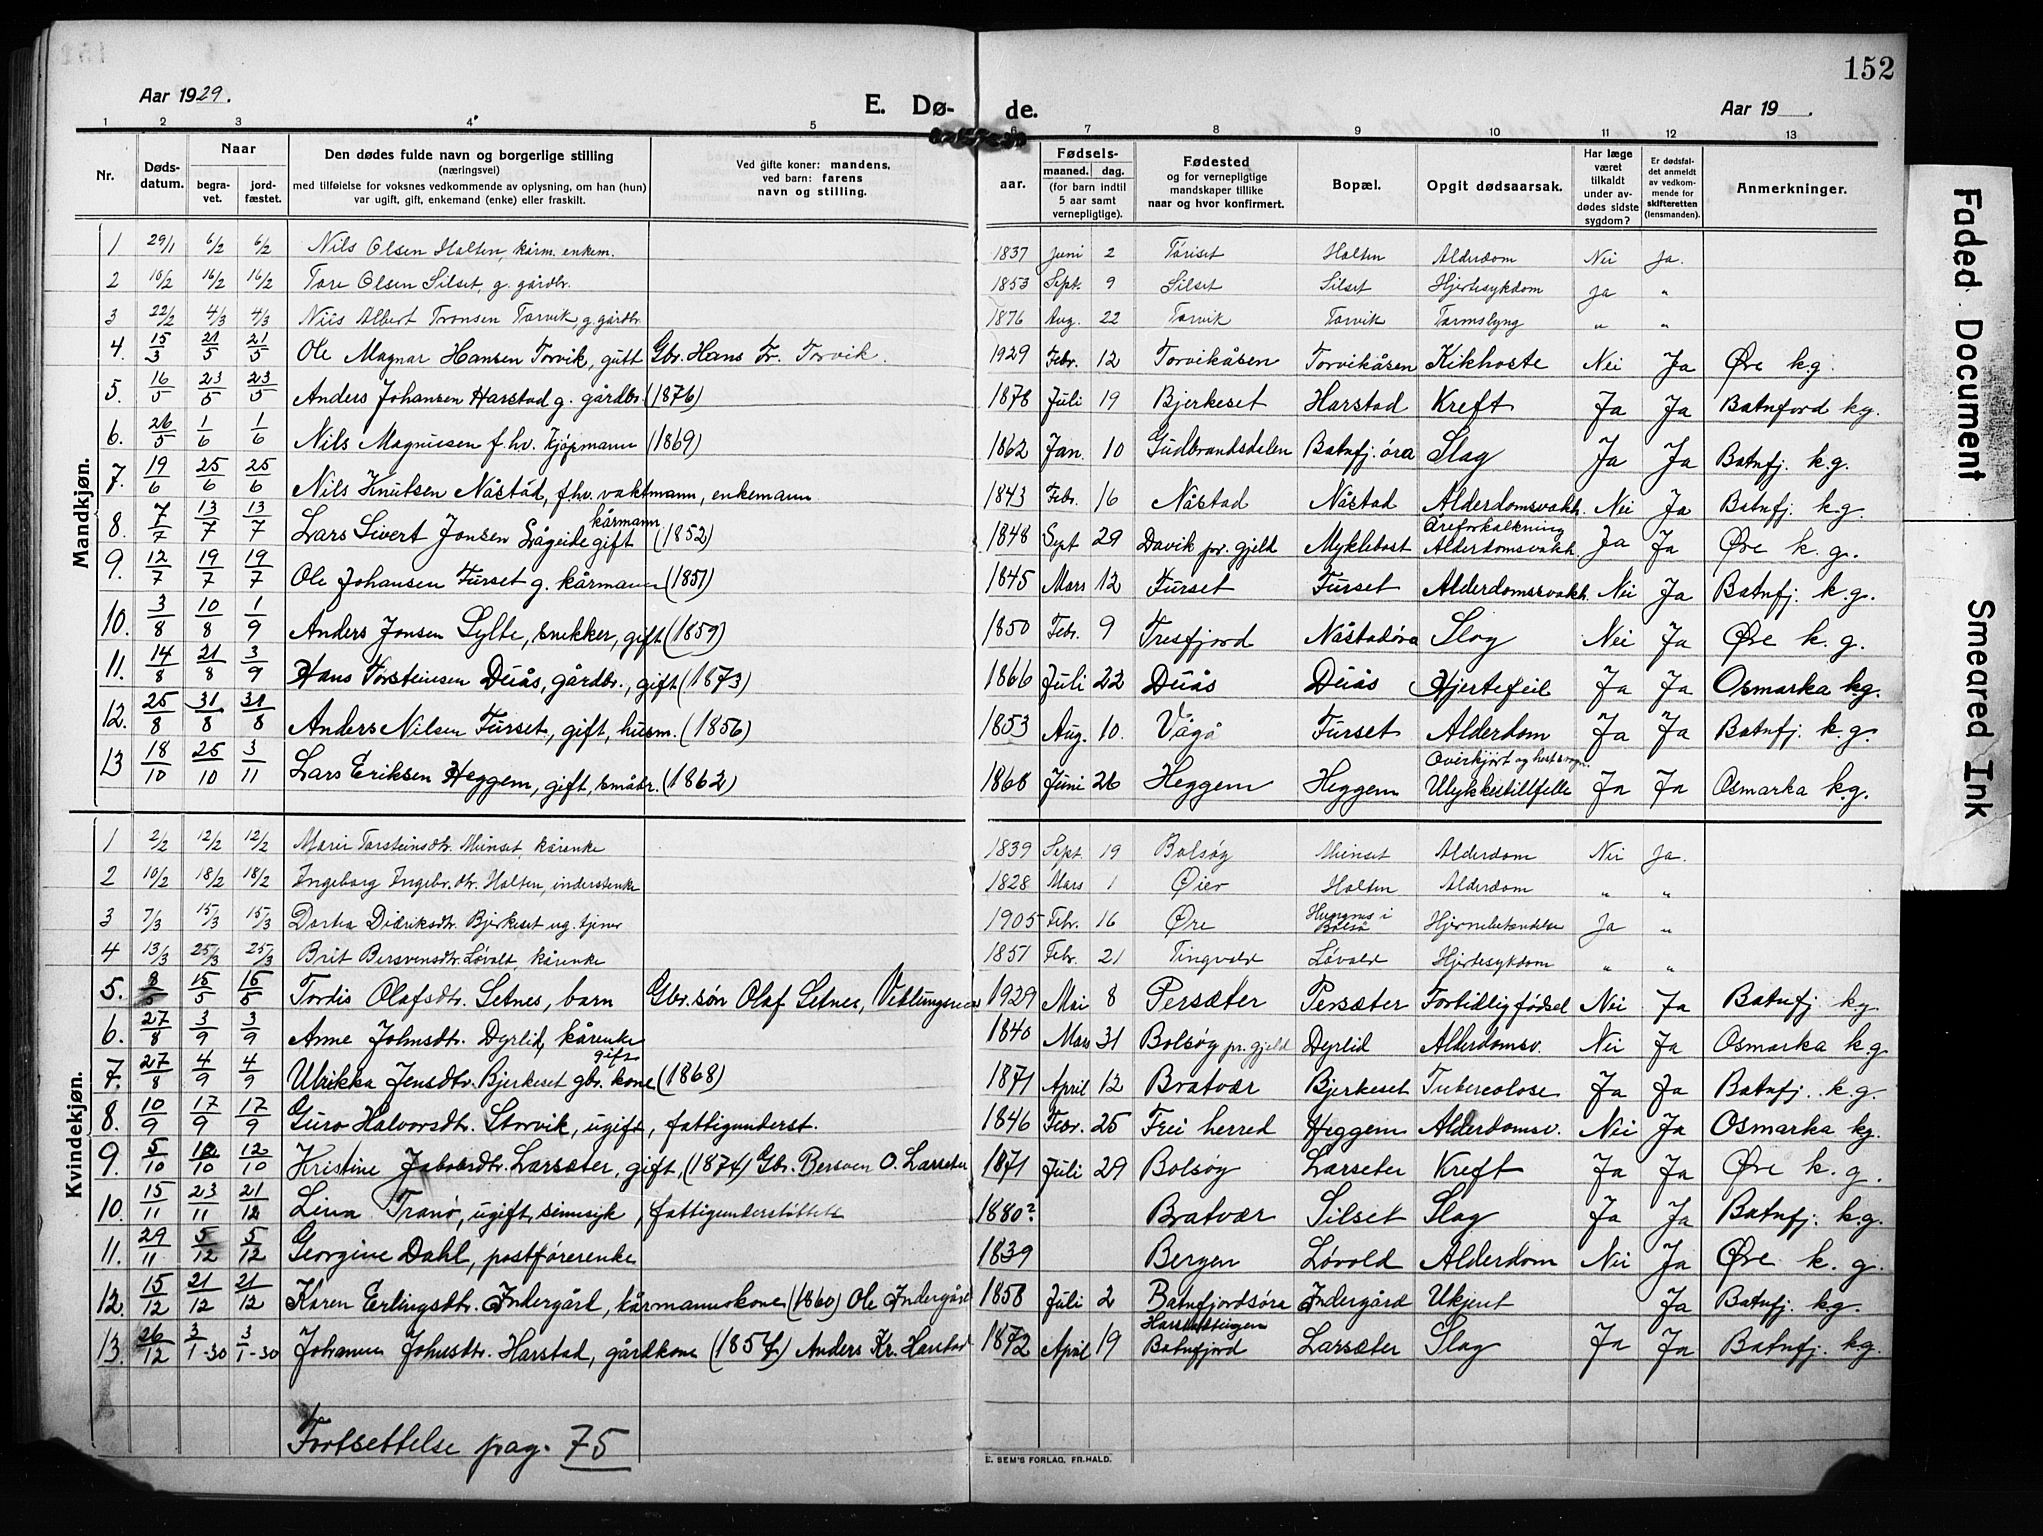 152
Aar 1929.
E. Dø-
de.
Aar 19
1 2 3 4 5 6 7 8 9 10 11 12 13
Nr.
Døds-
datum.
Naar
begra-
vet.
jord-
fæstet.
Den dødes fulde navn og borgerlige stilling
(næringsvei)
med tilføielse for voksnes vedkommende av oplysning, om han (hun)
var ugift, gift, enkemand (enke) eller fraskilt.
Ved gifte koner: mandens,
ved barn: farens
navn og stilling.
aar.
Fødsels-
maaned. dag.
(for barn indtil
5 aar samt
vernepligtige).
Fødested
og for vernepligtige
mandskaper tillike
naar og hvor konfirmert.
Bopæl.
Opgit dødsaarsak.
Har læge
været
tilkaldt
under av-
dødes sidste
sygdom?
Er dødsfal-
det anmeldt
av vedkom-
mende for
skifteretten
(lensmanden).
Anmerkninger.
Mandkjøn.
1 29/1 6/2 6/2 Nils Olsen Holten, kårm. enkem. 1837 Juni 2 Tøriset Holten Alderdom Nei Ja.
2 10/2 16/2 16/2 Tore Olsen Silset, g. gårdbr. 1853 Sept. 9 Silset Silset Hjertesykdom Ja "
3 22/2 4/3 4/3 Nils Albert Tronsen Torvik, g. gårdbr. 1876 Aug. 22 Torvik Torvik Tarmslyng " "
4. 15/3 21/5 21/5 Ole Magnar Hansen Torvik, gutt Gbr. Hans Tr. Torvik. 1929 Febr. 12 Torvikåsen Torvikåsen Kikhoste Nei Ja Øre kg.
5. 16/5 23/5 23/5 Anders Johansen Harstad g. gårdbr. (1876) 1878 Juli 19 Bjerkeset Harstad Kreft Ja Ja Batnfjord kg.
6. 26/5 1/6 1/6 Nils Magnussen f. hv. kjøpmann (1869) 1862 Jan. 10 Gudbrandsdalen Batnfj.øra Slag Ja Ja Batnfj. k.g.
7. 19/6 25/6 25/6 Nils Knutsen Nåstad, f.hv. vaktmann, enkemann 1843 Febr. 16 Nåstad Nåstad Alderdomsvakh. Nei Ja Batnfj. k.g.
8. 7/7 13/7 13/7 Lars Sivert Jonsen Lågeide kårmann gift (1852) 1848 Sept 29 Davik pr. gjeld Myklebost Åreforkalkning Alderdomsvakh. Ja Ja Øre k. g.
9. 12/7 19/7 19/7 Ole Johansen Furset g. kårmann (1851) 1845 Mars 12 Furset Furset Alderdomssvakh. Nei Ja Batnfj. k.g.
10. 3/8 10/8 1/9 Anders Jonsen Sylte, snekker, gift (1859) 1850 Febr. 9 Tresfjord Nåstadøra Slag Nei Ja Øre k. g.
11. 14/8 21/8 3/9 Hans Torsteinsen Duås, gårdbr., gift (1873) 1866 Juli 22 Duås Duås Hjertefeil Ja Ja Osmarka kg.
12. 25/8 31/8 31/8 Anders Nilsen Furset, gift, husm. (1856) 1853 Aug. 10. Vågå Furset Alderdom Ja Ja Batnfj. k.g.
13 18/10 25/10 3/11 Lars Eriksen Heggem, gift, småbr. (1862) 1868 Juni 26 Heggem Heggem Overkjørt og hest & vogn. Ulykkestillfelle Ja Ja Osmarka kg.
Kvindekjøn.
1 2/2 12/2 12/2 Marit Torsteinsdtr. Meinset, kårenke 1839 Sept. 19 Bolsøy Meinset Alderdom Nei Ja.
2 10/2 18/2 18/2 Ingeborg Ingebr.dtr. Holten, inderstenke 1828 Mars 1 Øier Holten Alderdom " "
3 7/3 15/3 15/3 Dortea Didriksdtr. Bjerkeset ug. tjener 1905 Febr. 16 Øre i Bolsø Hjernebetændelse Ja "
4 13/3 25/3 25/3 Brit Bersvensdtr. Løvold, kårenke 1851 Febr. 21 Tingvold Løvold Hjertesykdom " "
5. 8/5 15/5 15/5 Tordis Olafsdtr. Setnes, barn Gbr. søn Olaf Setnes, Vetlungsnes 1929 Mai 8 Persæter Persæter Fortidlig fødsel Nei Ja Batnfj. kg.
6. 27/8 3/9 3/9 Anne Johnsdtr. Dyrlid, kårenke 1840 Mars 31 Bolsøy pr. gjeld Dyrlid Alderdomsv. Nei Ja Osmarka k.g
7. 27/8 4/9 4/9 Ulrikka Jensdtr. Bjerkeset gbr. kone gift (1868) 1871 April 12 Bratvær Bjerkeset Tuberculose Ja Ja Batnfj. k.g.
8. 10/9 17/9 17/9 Guro Halvorsdtr. Storvik, ugift, fattigunderst. 1846 Febr. 25 Frei herred Heggem Alderdomsv. Nei Ja Osmarka kg.
9. 5/10 12/10 12/10 Kristine Jakobsdtr. Larsæter, gift, (1874) Gbr. Bersven O. Larsæter 1871 Juli 29 Bolsøy Larseter Kreft Ja Ja Øre k. g.
10. 15/11 23/11 21/12 Lina Tranø, ugift, sinnsyk, fattigunderstøttet 1880? Bratvær Silset Slag Ja Ja Batnfj. k.g.
11. 29/11 5/12 5/12 Georgine Dahl, postførerenke 1839 Bergen Løvold Alderdom Nei Ja Øre k. g.
12. 15/12 21/12 21/12 Karen Erlingsdtr. Indergård, kårmannskone (1860) Ole Indergård 1858 Juli 2 Batnfjordsøra Indergård Ukjent Ja Batnfj. kg.
13. 26/12 3/1-30 3/1-30 Johanne Johnsdtr. Harstad, gårdkone (1854) Anders Kr. Harstad 1872 April 19 Batnfjord Larsæter Slag Ja Ja Batnfj. kg.
Fortsettelse pag. 75
E. SEM'S FORLAG, FR.HALD.
Faded Document
Smeared Ink